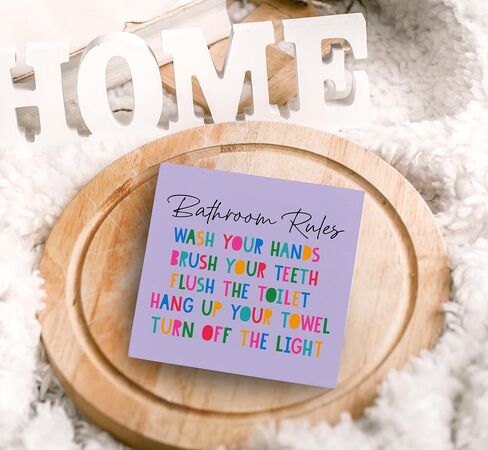 HOME
Bathroom Rules
WASH YOUR HANDS
BRUSH YOUR TEETH
FLUSH THE TOILET
HANG UP YOUR TOWEL
TURN OFF THE LIGHT